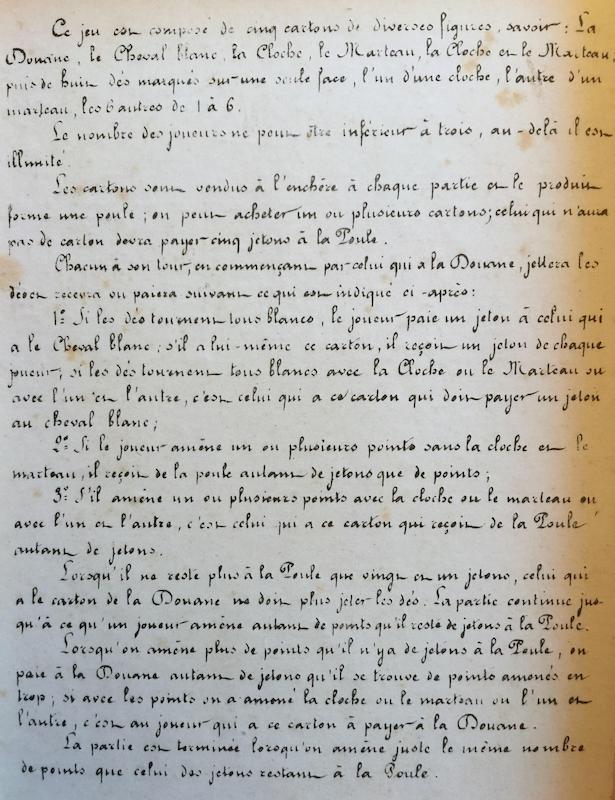 Ce jeu est composé de cinq cartons de diverses figures, savoir : La
Douane, le Cheval blanc, la Cloche, le Marteau, la Cloche et le Marteau;
puis de huit dés marqués sur une seule face, l'un d'une cloche, l'autre d'un
marteau, les 6 autres de 1 à 6.
Le nombre des joueurs ne peut être inférieur à trois, au-delà il est
illimité.
Les cartons sont vendus à l'enchère à chaque partie et le produit
forme une poule ; on peut acheter un ou plusieurs cartons; celui qui n'aura
pas de carton devra payer cinq jetons à la Poule.
Chacun à son tour, en commençant par celui qui a la Douane, jettera les
dés et recevra ou paiera suivant ce qui est indiqué ci-après:
1º Si les dés tournent tous blancs, le joueur paie un jeton à celui qui
a le Cheval blanc ; s'il a lui-même ce carton, il reçoit un jeton de chaque
joueur; si les dés tournent tous blancs avec la Cloche ou le Marteau ou
avec l'un et l'autre, c'est celui qui a ce carton qui doit payer un jeton
au cheval blanc;
2º Si le joueur amène un ou plusieurs points sans la cloche et le
marteau, il reçoit de la poule autant de jetons que de points ;
3º S'il amène un ou plusieurs points avec la cloche ou le marteau ou
avec l'un et l'autre, c'est celui qui a ce carton qui reçoit de la Poule
autant de jetons.
Lorsqu'il ne reste plus à la Poule que vingt et un jetons, celui qui
a le carton de la Douane ne doit plus jeter les dés. La partie continue jus-
qu'à ce qu'un joueur amène autant de points qu'il reste de jetons à la Poule.
Lorsqu'on amène plus de points qu'il n'y a de jetons à la Poule, on
paie à la Douane autant de jetons qu'il se trouve de points amenés en
trop ; si avec les points on a amené la cloche ou le marteau ou l'un et
l'autre, c'est au joueur qui a ce carton à payer à la Douane.
La partie est terminée lorsqu'on amène juste le même nombre
de points que celui des jetons restant à la Poule.